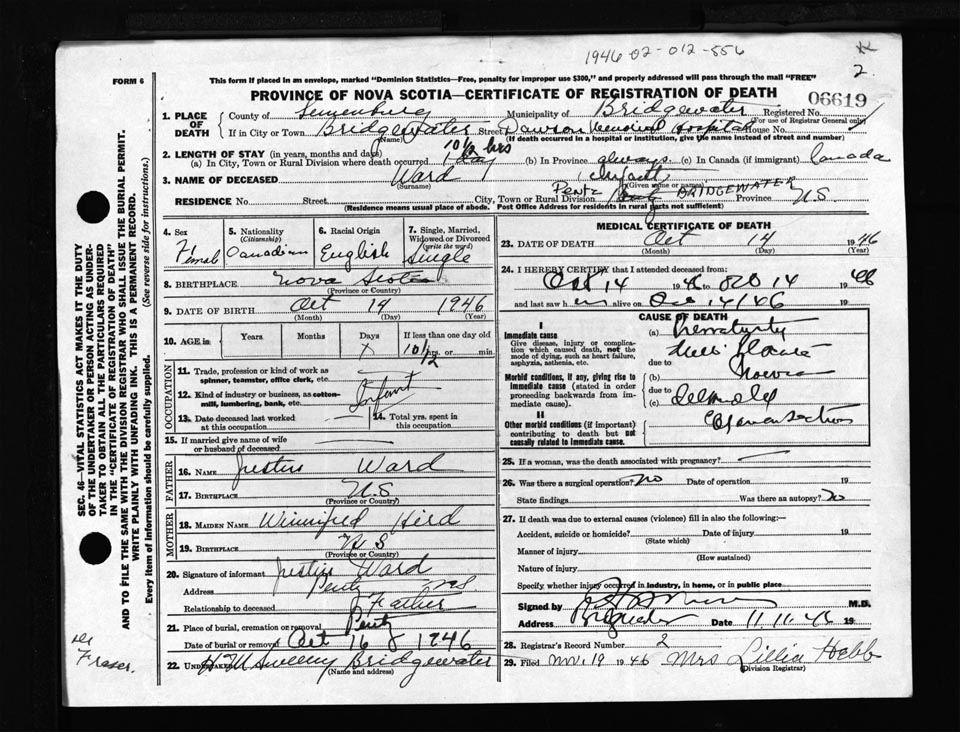 1946-02-012-556
2.
FORM 6
This form if placed in an envelope, marked "Dominion Statistics—Free, penalty for improper use $300," and properly addressed will pass through the mail "FREE"
PROVINCE OF NOVA SCOTIA—CERTIFICATE OF REGISTRATION OF DEATH
06619
1. PLACE OF DEATH
County of Lunenburg Municipality of Bridgewater Registered No.
(For use of Registrar General only)
If in City or Town Bridgewater Street Dawson Memorial Hospital House No.
(Name) (If death occurred in a hospital or institution, give the name instead of street and number)
2. LENGTH OF STAY (in years, months and days) 10½ hrs
(a) In City, Town or Rural Division where death occurred 1 day (b) In Province always (c) In Canada (if immigrant) Canada
3. NAME OF DECEASED Ward Infant
(Surname) (Given name or names)
RESIDENCE No. Street City, Town or Rural Division Pentz BRIDGEWATER Province N.S.
(Residence means usual place of abode. Post Office Address for residents in rural parts not sufficient)
4. Sex Female
5. Nationality (Citizenship) Canadian
6. Racial Origin English
7. Single, Married, Widowed or Divorced (write the word) Single
8. BIRTHPLACE Nova Scotia
(Province or Country)
9. DATE OF BIRTH Oct 14 1946
(Month) (Day) (Year)
10. AGE in Years Months Days If less than one day old
10½ hrs. or min.
OCCUPATION
11. Trade, profession or kind of work as spinner, teamster, office clerk, etc.
12. Kind of industry or business, as cotton-mill, lumbering, bank, etc. Infant
13. Date deceased last worked at this occupation
14. Total yrs. spent in this occupation
15. If married give name of wife or husband of deceased
FATHER
16. NAME Justin Ward
17. BIRTHPLACE N.S
(Province or Country)
MOTHER
18. MAIDEN NAME Winnifred Hird
19. BIRTHPLACE N S
(Province or Country)
20. Signature of informant Justin Ward
Address Pentz NS
Relationship to deceased Father
21. Place of burial, cremation or removal Pentz
Date of burial or removal Oct 16 1946
22. UNDERTAKER Sweeny Bridgewater
(Name and address)
MEDICAL CERTIFICATE OF DEATH
23. DATE OF DEATH Oct 14 1946
(Month) (Day) (Year)
24. I HEREBY CERTIFY that I attended deceased from:
Oct 14 1946 to Oct 14 1946
and last saw h er alive on Oct 14/46 19
CAUSE OF DEATH
I
Immediate cause
Give disease, injury or complication which caused death, not the mode of dying, such as heart failure, asphyxia, asthenia, etc.
(a) Prematurity
due to
Morbid conditions, if any, giving rise to immediate cause (stated in order proceeding backwards from immediate cause).
(b)
due to
(c)
II
Other morbid conditions (if important) contributing to death but not causally related to immediate cause.
25. If a woman, was the death associated with pregnancy?
26. Was there a surgical operation? no Date of operation 19
State findings Was there an autopsy? no
27. If death was due to external causes (violence) fill in also the following:—
Accident, suicide or homicide? Date of injury 19
(State which)
Manner of injury
(How sustained)
Nature of injury
Specify whether injury occurred in industry, in home, or in public place
Signed by M.D.
Address Bridgewater Date 11.11.46 19
28. Registrar's Record Number 2
29. Filed Nov. 19 1946 Mrs Lillia Hebb
(Division Registrar)
SEC. 46—VITAL STATISTICS ACT MAKES IT THE DUTY OF THE UNDERTAKER OR PERSON ACTING AS UNDERTAKER TO OBTAIN ALL THE PARTICULARS REQUIRED IN THE "CERTIFICATE OF REGISTRATION OF DEATH" AND TO FILE THE SAME WITH THE DIVISION REGISTRAR WHO SHALL ISSUE THE BURIAL PERMIT.
WRITE PLAINLY WITH UNFADING INK. THIS IS A PERMANENT RECORD.
Every item of information should be carefully supplied. (See reverse side for instructions.)
Dr Fraser.